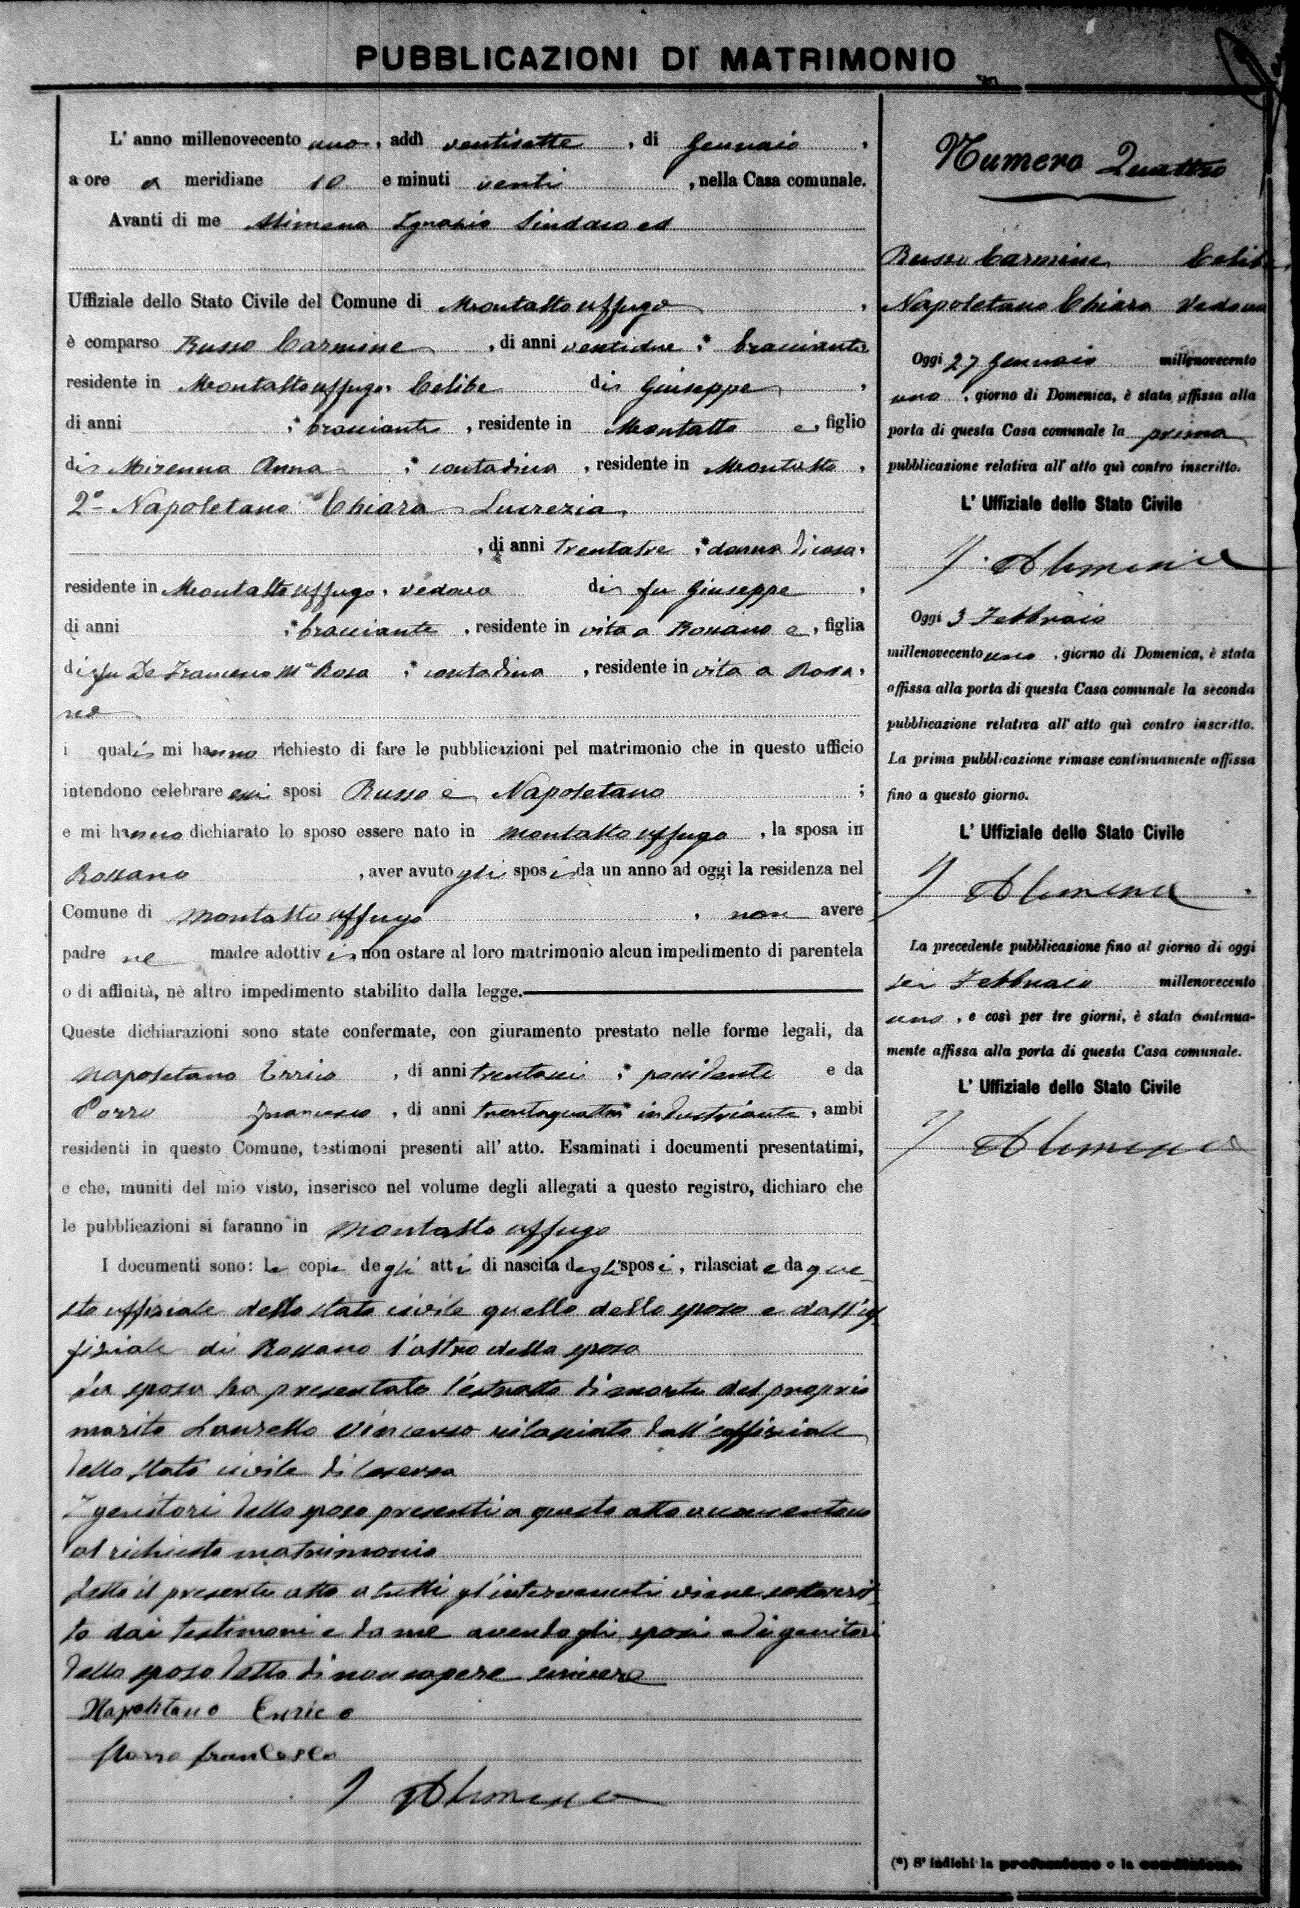 PUBBLICAZIONI DI MATRIMONIO
L' anno millenovecento uno, addì ventisette, di Gennaio,
a ore a meridiane 10 e minuti venti, nella Casa comunale.
Avanti di me Alimena Ignazio Sindaco ed
Uffiziale dello Stato Civile del Comune di Montalto Uffugo,
è comparso Russo Carmine, di anni ventidue, * bracciante
residente in Montalto Uffugo, Celibe di Giuseppe,
di anni * bracciante, residente in Montalto e, figlio
di Mirenna Anna, * contadina, residente in Montalto,
2° Napoletano Chiara Lucrezia
, di anni trentatre, * donna di casa,
residente in Montalto Uffugo, vedova di fu Giuseppe,
di anni * bracciante, residente in vita a Rossano e, figlia
di fu De Francesco Mª Rosa, * contadina, residente in vita a Rossa-
no
i quali mi hanno richiesto di fare le pubblicazioni pel matrimonio che in questo ufficio
intendono celebrare essi sposi Russo e Napoletano;
e mi hanno dichiarato lo sposo essere nato in Montalto Uffugo, la sposa in
Rossano, aver avuto gli sposi da un anno ad oggi la residenza nel
Comune di Montalto Uffugo, non avere
padre ne madre adottivi non ostare al loro matrimonio alcun impedimento di parentela
o di affinità, nè altro impedimento stabilito dalla legge.
Queste dichiarazioni sono state confermate, con giuramento prestato nelle forme legali, da
Napoletano Errico, di anni trentasei, * possidente e da
Porro Francesco, di anni trentaquattro * industriante, ambi
residenti in questo Comune, testimoni presenti all' atto. Esaminati i documenti presentatimi,
e che, muniti del mio visto, inserisco nel volume degli allegati a questo registro, dichiaro che
le pubblicazioni si faranno in Montalto Uffugo
I documenti sono: le copie degli atti di nascita degli sposi, rilasciate da que-
sto uffiziale dello stato civile quello dello sposo e dall'uf-
fiziale di Rossano l'altro della sposa
La sposa ha presentato l'estratto di morte del proprio
marito Lauzello Vincenzo rilasciato dall'uffiziale
dello stato civile di Cosenza
I genitori dello sposo presenti a questo atto acconsentono
al richiesto matrimonio
Letto il presente atto a tutti gl'intervenuti viene sottoscrit-
to dai testimoni e da me avendo gli sposi ed i genitori
dello sposo detto di non sapere scrivere
Napolitano Enrico
Porro Francesco
I Alimena
Numero Quattro
Russo Carmine Celibe
Napoletano Chiara Vedova
Oggi 27 Gennaio millenovecento
uno, giorno di Domenica, è stata affissa alla
porta di questa Casa comunale la prima
pubblicazione relativa all' atto quì contro inscritto.
L' Uffiziale dello Stato Civile
I Alimena
Oggi 3 Febbraio
millenovecento uno, giorno di Domenica, è stata
affissa alla porta di questa Casa comunale la seconda
pubblicazione relativa all' atto quì contro inscritto.
La prima pubblicazione rimase continuamente affissa
fino a questo giorno.
L' Uffiziale dello Stato Civile
I Alimena
La precedente pubblicazione fino al giorno di oggi
sei Febbraio millenovecento
uno, e così per tre giorni, è stata continua-
mente affissa alla porta di questa Casa comunale.
L' Uffiziale dello Stato Civile
I Alimena
(*) S' indichi la professione o la condizione.